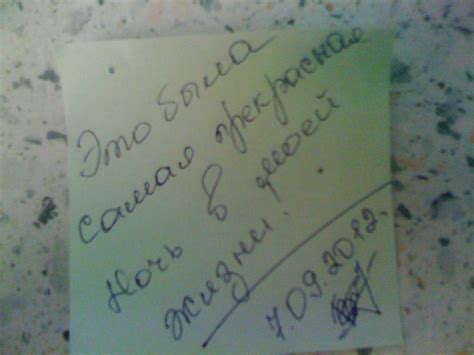 Это была
самая прекрасная
ночь в моей
жизни!
7.09.2012.